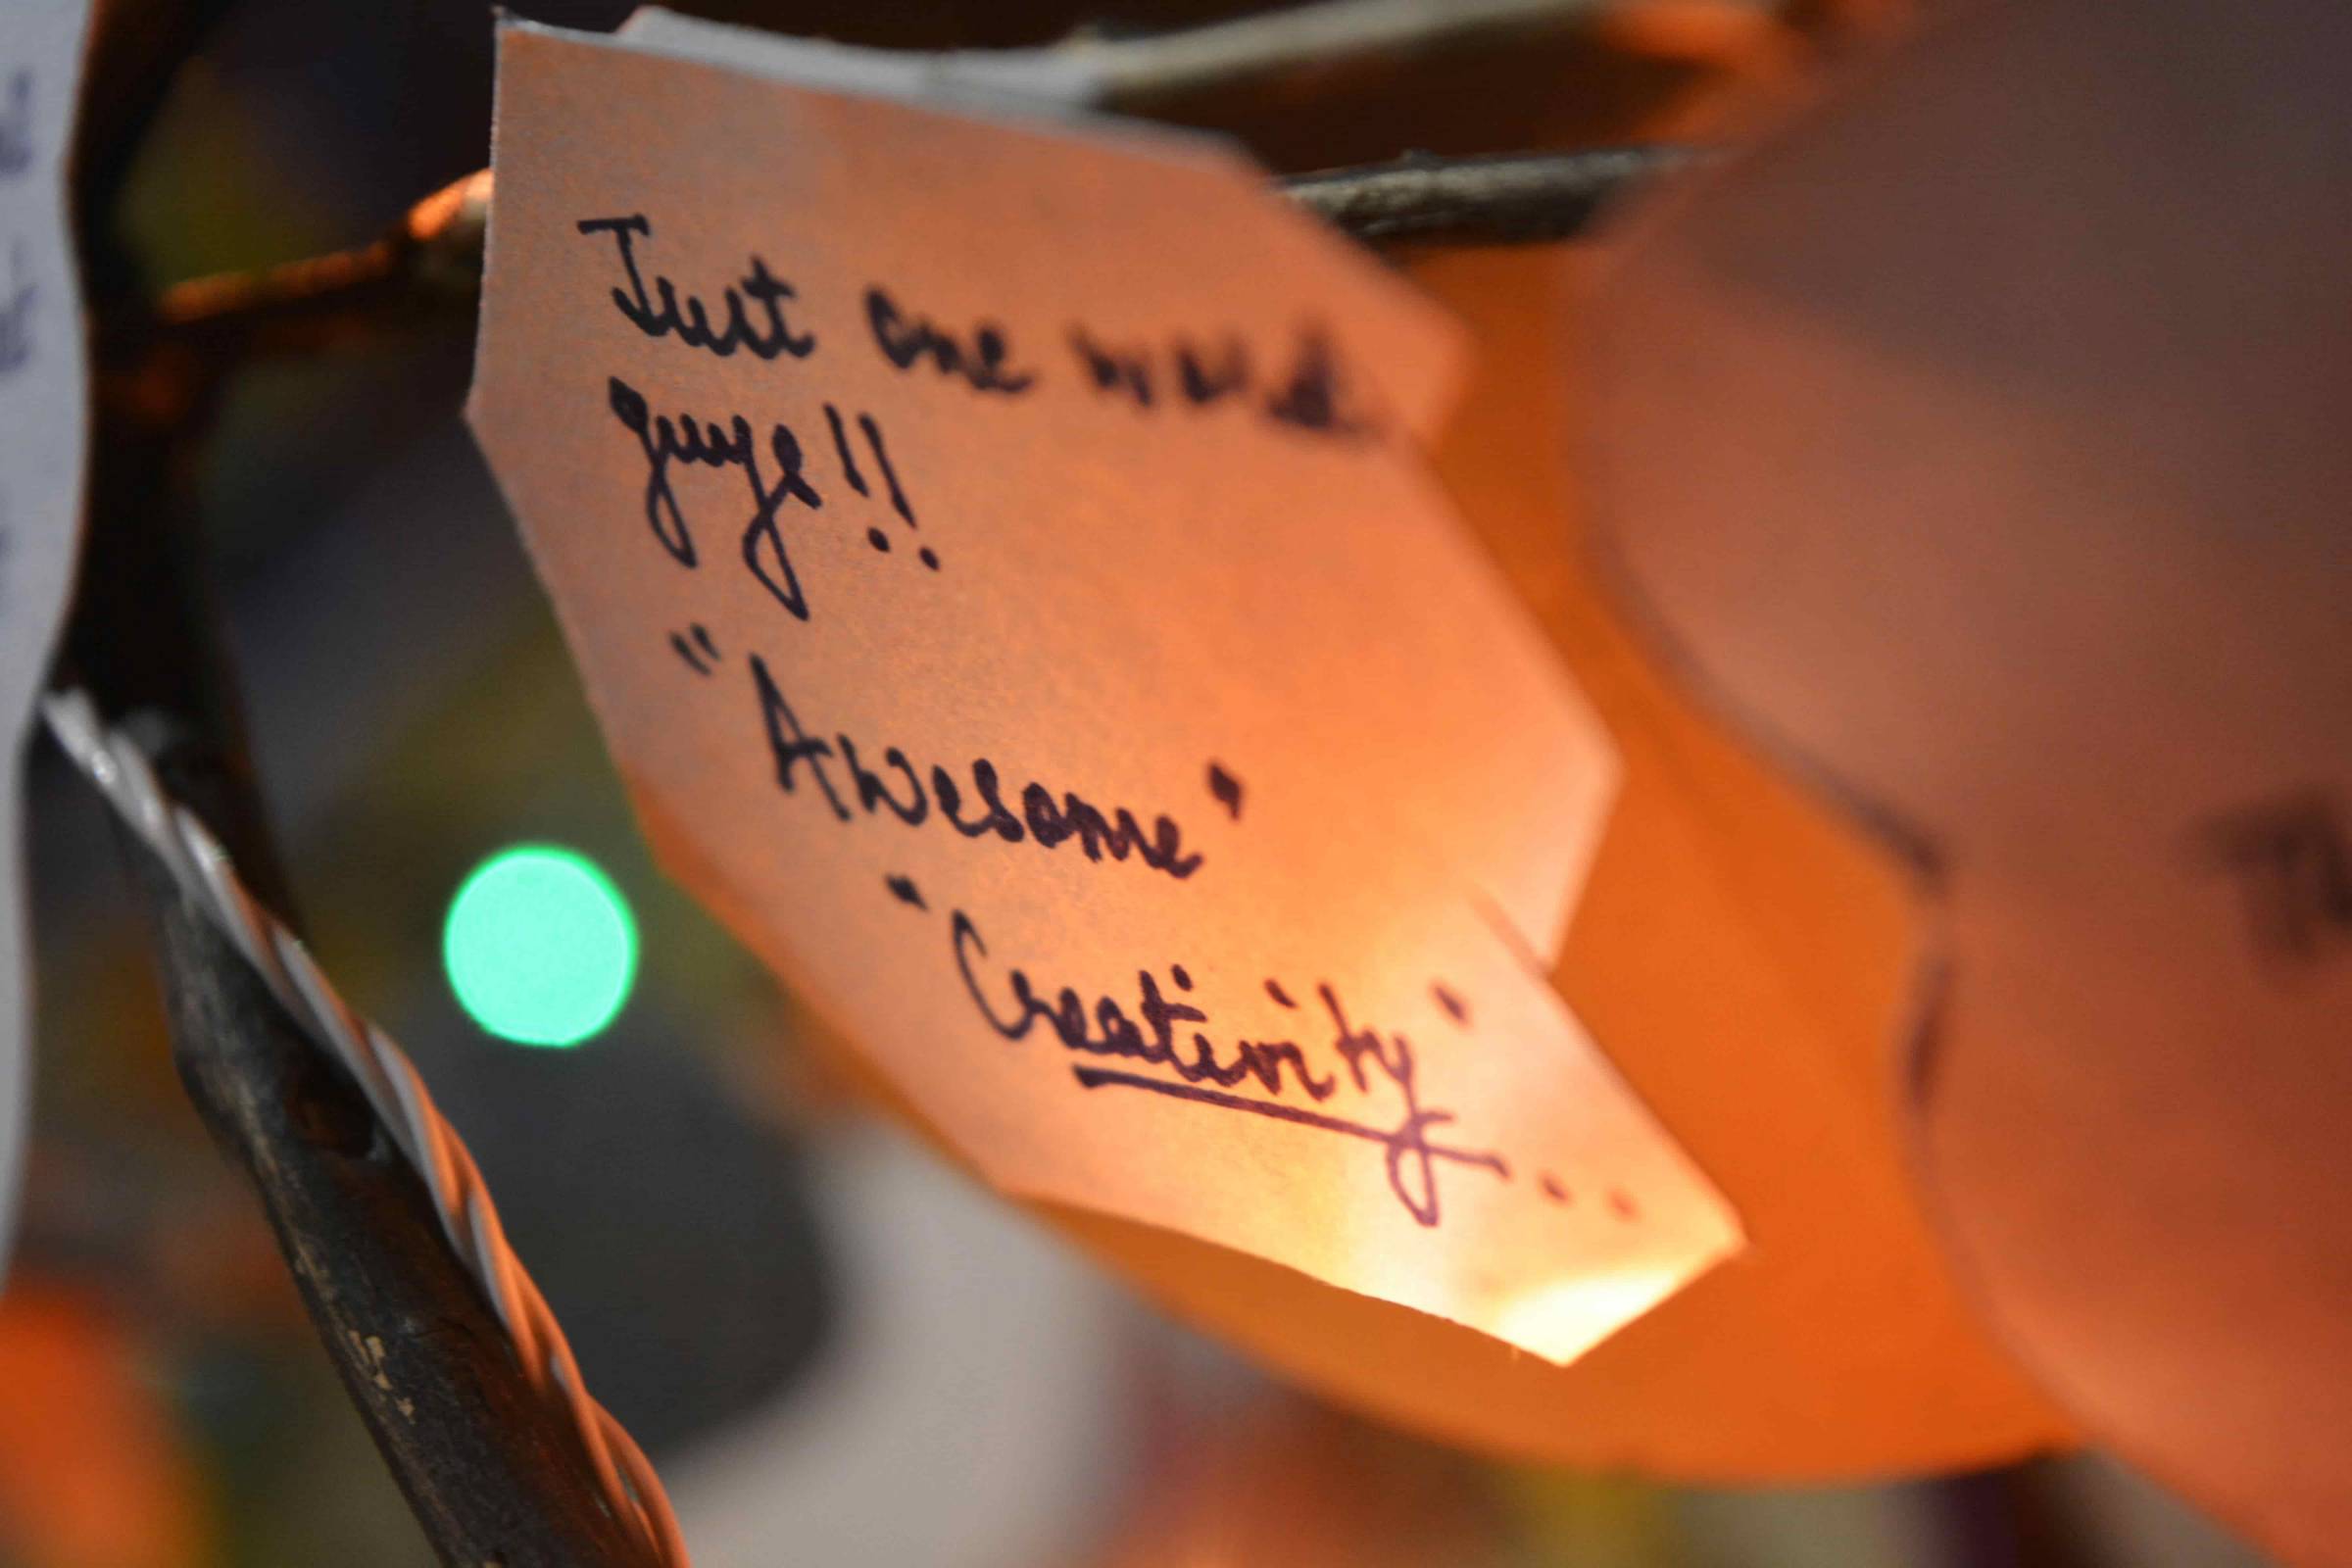 Just one word
guys!!
"Awesome"
"Creativity"...